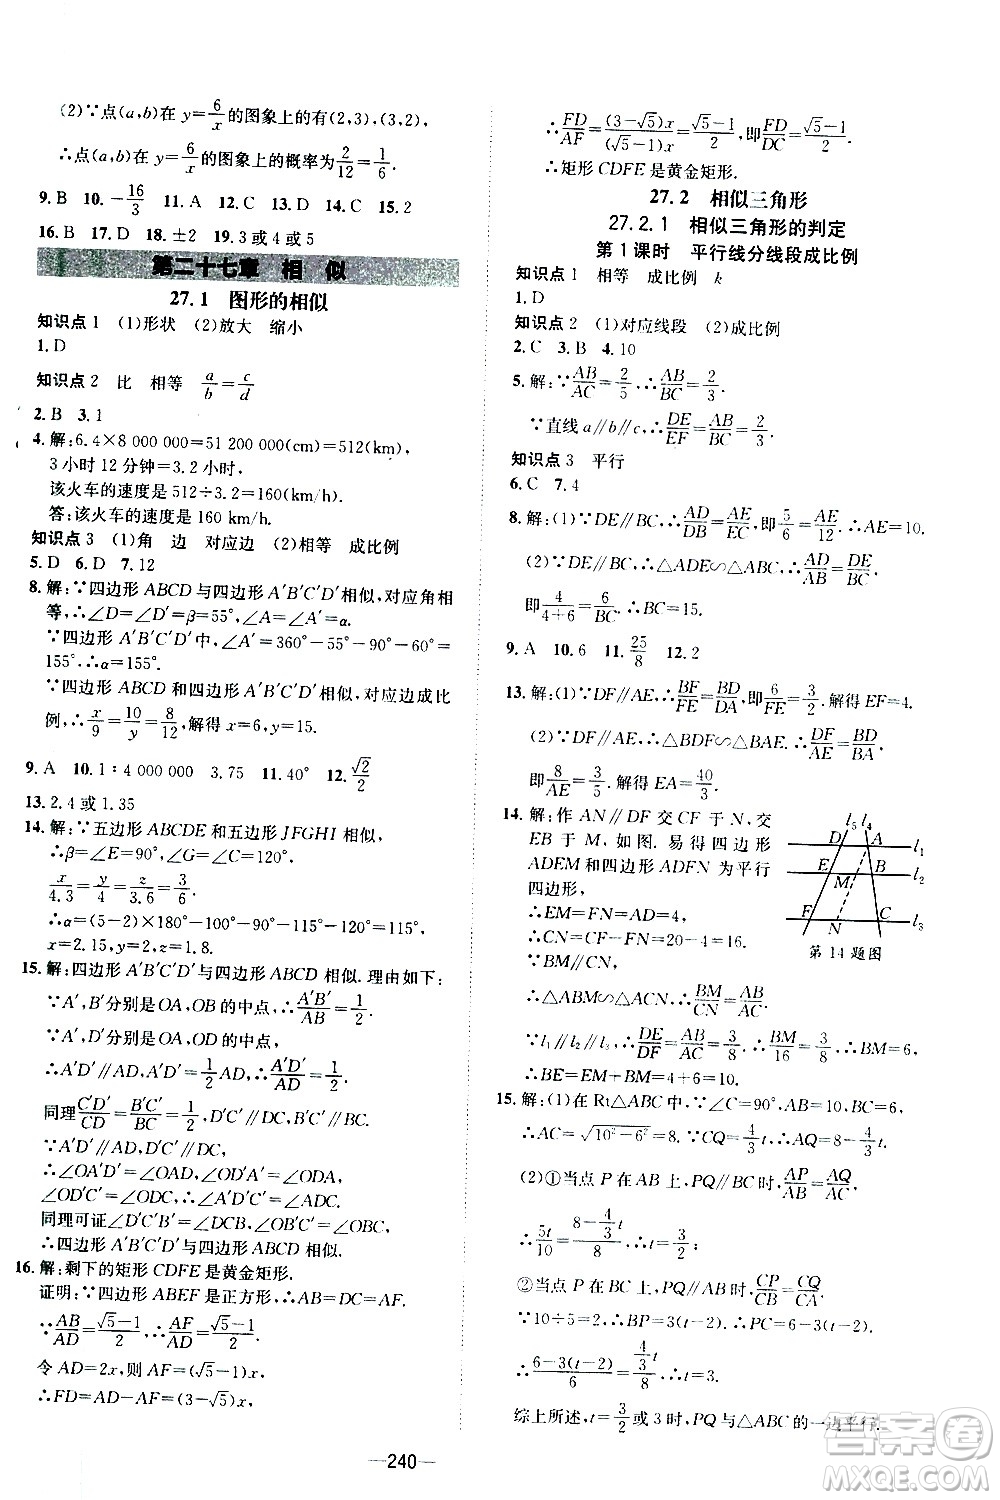 (2)∵点(a,b)在 y=6/x 的图象上的有(2,3),(3,2),
∴点(a,b)在 y=6/x 的图象上的概率为2/12=1/6.
9.B 10.-16/3 11.A 12.C 13.D 14.C 15.2
16.B 17.D 18.±2 19.3 或 4 或 5
第二十七章 相 似
27.1 图形的相似
知识点 1 (1)形状 (2)放大 缩小
1.D
知识点 2 比 相等 a/b=c/d
2.B 3.1
4.解:6.4×8 000 000=51 200 000(cm)=512(km)
3 小时 12 分钟=3.2 小时,
该火车的速度是 512÷3.2=160(km/h)
答:该火车的速度是 160 km/h.
知识点 3 (1)角 边 对应边 (2)相等 成比例
5.D 6.D 7.12
8.解:∵四边形 ABCD 与四边形 A′B′C′D′相似,对应角相
等,∴∠D=∠D′=β=55°,∠A=∠A′=α.
∵四边形 A′B′C′D′中,∠A′=360°-55°-90°-60°=
155°,∴α=155°.
∵四边形 ABCD 和四边形 A′B′C′D′相似,对应边成比
例,∴x/9=10/y=8/12,解得 x=6,y=15.
9.A 10.1∶4 000 000 3.75 11.40° 12.√2/2
13.2.4 或 1.35
14.解:∵五边形 ABCDE 和五边形 JFGHI 相似,
∴β=∠E=90°,∠G=∠C=120°.
x/4.3=y/4=z/5=3/6.
∴α=(5-2)×180°-90°-90°-115°-120°=125°,
x=2.15,y=2,z=1.8.
15.解:四边形 A′B′C′D′与四边形 ABCD 相似.理由如下:
∵A′,B′分别是 OA,OB 的中点,∴A′B′/AB=1/2.
∵A′,D′分别是 OA,OD 的中点,
∴A′D′∥AD,A′D′=1/2AD,∴A′D′/AD=1/2.
同理C′D′/CD=B′C′/BC=1/2,D′C′∥DC,B′C′∥BC,
∵A′D′∥AD,D′C′∥DC,
∴∠OA′D′=∠OAD,∠OD′A′=∠ODA,
∠OD′C′=∠ODC,∴∠A′D′C′=∠ADC.
同理可证∠D′C′B′=∠DCB,∠OB′C′=∠OBC.
∴四边形 A′B′C′D′与四边形 ABCD 相似.
16.解:剩下的矩形 CDFE 是黄金矩形.
证明:∵四边形 ABEF 是正方形,∴AB=DC=AF.
∵AB/AD=(√5-1)/2,∴AF/AD=(√5-1)/2.
令 AD=2x,则 AF=(√5-1)x,
∴FD=AD-AF=(3-√5)x,
∴FD/AF=(3-√5)x/(√5-1)x=(√5-1)/2,即FD/DC=(√5-1)/2.
∴矩形 CDFE 是黄金矩形.
27.2 相似三角形
27.2.1 相似三角形的判定
第 1 课时 平行线分线段成比例
知识点 1 相等 成比例 k
1.D
知识点 2 (1)对应线段 (2)成比例
2.C 3.B 4.10
5.解:∵AB/AC=2/5,∴AB/BC=2/3.
∵直线 a∥b∥c,∴DE/EF=AB/BC=2/3.
知识点 3 平行
6.C 7.4
8.解:(1)∵DE∥BC,∴AD/DB=AE/EC,即5/6=AE/12,∴AE=10.
(2)∵DE∥BC,∴△ADE∽△ABC,∴AD/AB=DE/BC,
即4/(4+6)=6/BC.∴BC=15.
9.A 10.6 11.25/8 12.2
13.解:(1)∵DF∥AE,∴BF/FE=BD/DA,即6/FE=3/2.解得 EF=4.
(2)∵DF∥AE,∴△BDF∽△BAE.∴DF/AE=BD/BA,
即8/AE=3/5.解得 EA=40/3.
14.解:作 AN∥DF 交 CF 于 N,交
EB 于 M,如图.易得四边形
ADEM 和四边形 ADFN 为平行
四边形,
∴EM=FN=AD=4,
∴CN=CF-FN=20-4=16.
∵BM∥CN,
∴△ABM∽△ACN,∴BM/CN=AB/AC.
∵l₁∥l₂∥l₃,∴DE/DF=AB/AC=3/8,∴BM/16=3/8,∴BM=6,
∴BE=EM+BM=4+6=10.
l₅ l₄
D A l₁
E B l₂
M
F N C l₃
第 14 题图
15.解:(1)在 Rt△ABC 中,∵∠C=90°,AB=10,BC=6,
∴AC=√(10²-6²)=8.∵CQ=4/3t,∴AQ=8-4/3t.
(2)①当点 P 在 AB 上,PQ∥BC时,AP/AB=AQ/AC,
∴5t/10=(8-4/3t)/8,∴t=3/2;
②当点 P 在 BC 上,PQ∥AB时,CP/CB=CQ/CA,
∵10÷5=2,∴BP=3(t-2),CP=6-3(t-2),
∴(6-3(t-2))/6=(4/3t)/8,∴t=3.
综上所述,t=3/2或 3 时,PQ 与△ABC 的一边平行.
—240—
答案圈
MXQE.COM